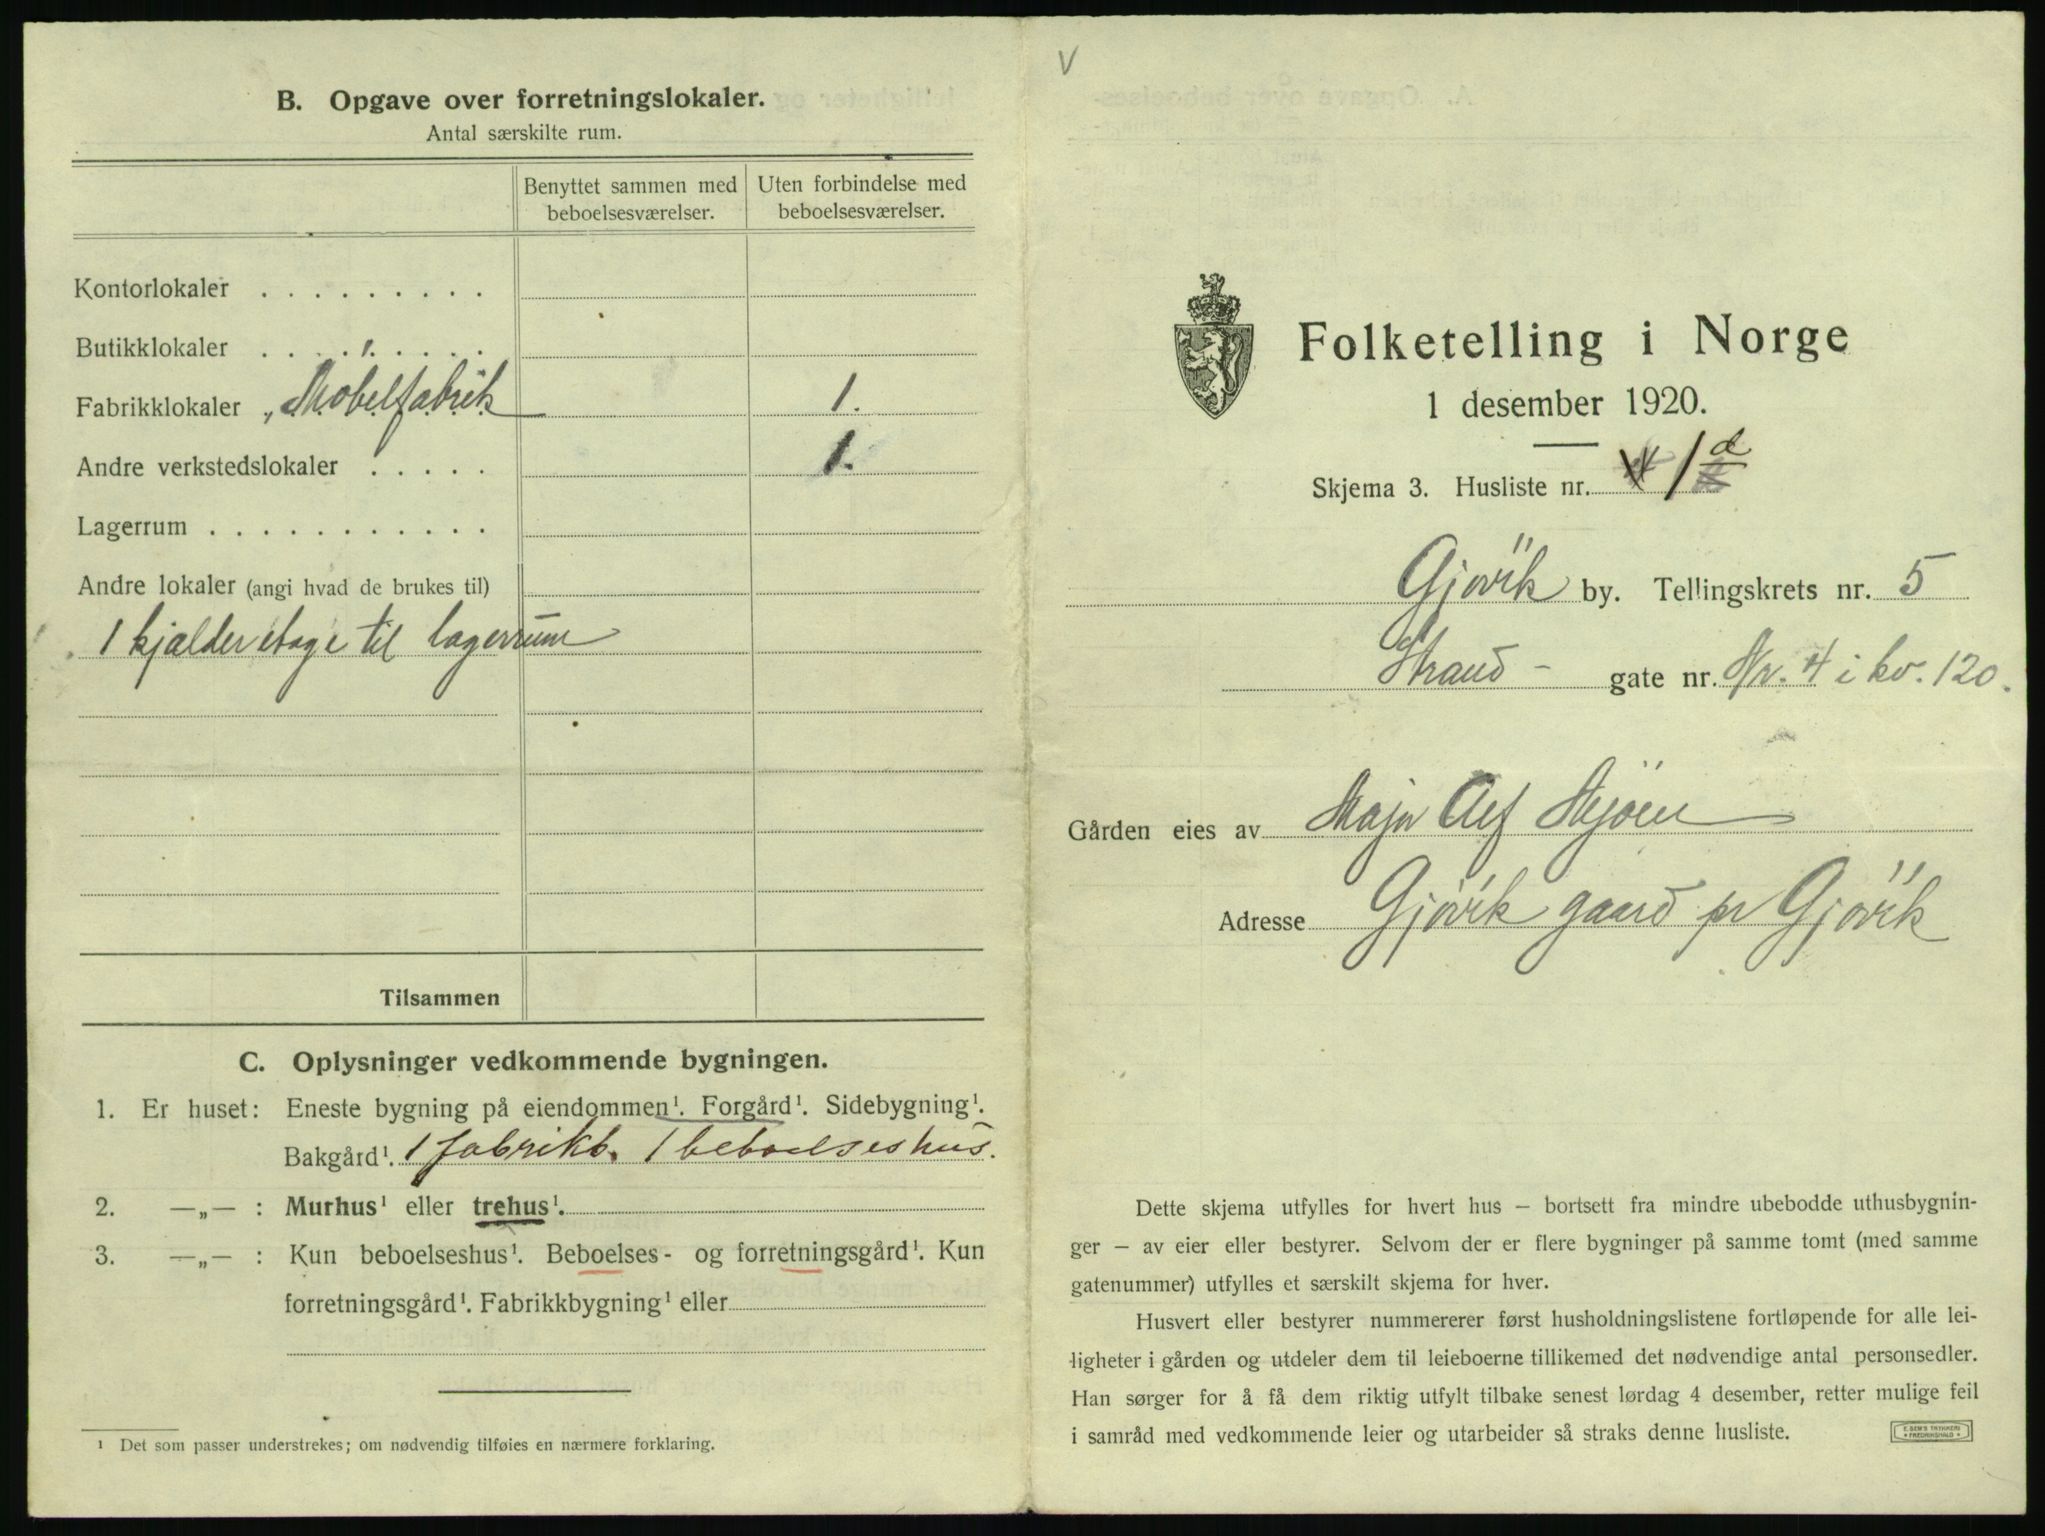 B. Opgave over forretningslokaler.
Antal særskilte rum.
Benyttet sammen med beboelsesværelser.
Uten forbindelse med beboelsesværelser.
Kontorlokaler . . . . . . . . .
Butikklokaler . . . . . . . . .
Fabrikklokaler „Møbelfabrik 1.
Andre verkstedslokaler . . . . . 1.
Lagerrum . . . . . . . . . . .
Andre lokaler (angi hvad de brukes til)
1 kjælderetage til lagerrum
Tilsammen
C. Oplysninger vedkommende bygningen.
1. Er huset: Eneste bygning på eiendommen¹. Forgård¹. Sidebygning¹.
Bakgård¹. 1 fabrikb. 1 beboelseshus.
2. —„— : Murhus¹ eller trehus¹.
3. —„— : Kun beboelseshus¹. Beboelses- og forretningsgård¹. Kun
forretningsgård¹. Fabrikkbygning¹ eller
¹ Det som passer understrekes; om nødvendig tilføies en nærmere forklaring.
V
Folketelling i Norge
1 desember 1920.
Skjema 3. Husliste nr. 1 d
Gjövik by. Tellingskrets nr. 5
Strand- gate nr. Nr. 4 i kv. 120.
Gården eies av Major Alf Mjöen
Adresse Gjövik gaard pr Gjövik
Dette skjema utfylles for hvert hus – bortsett fra mindre ubebodde uthusbygnin-
ger – av eier eller bestyrer. Selvom der er flere bygninger på samme tomt (med samme
gatenummer) utfylles et særskilt skjema for hver.
Husvert eller bestyrer nummererer først husholdningslistene fortløpende for alle lei-
ligheter i gården og utdeler dem til leieboerne tillikemed det nødvendige antal personsedler.
Han sørger for å få dem riktig utfylt tilbake senest lørdag 4 desember, retter mulige feil
i samråd med vedkommende leier og utarbeider så straks denne husliste.
E. SEM'S TRYKKERI
FREDRIKSHALD